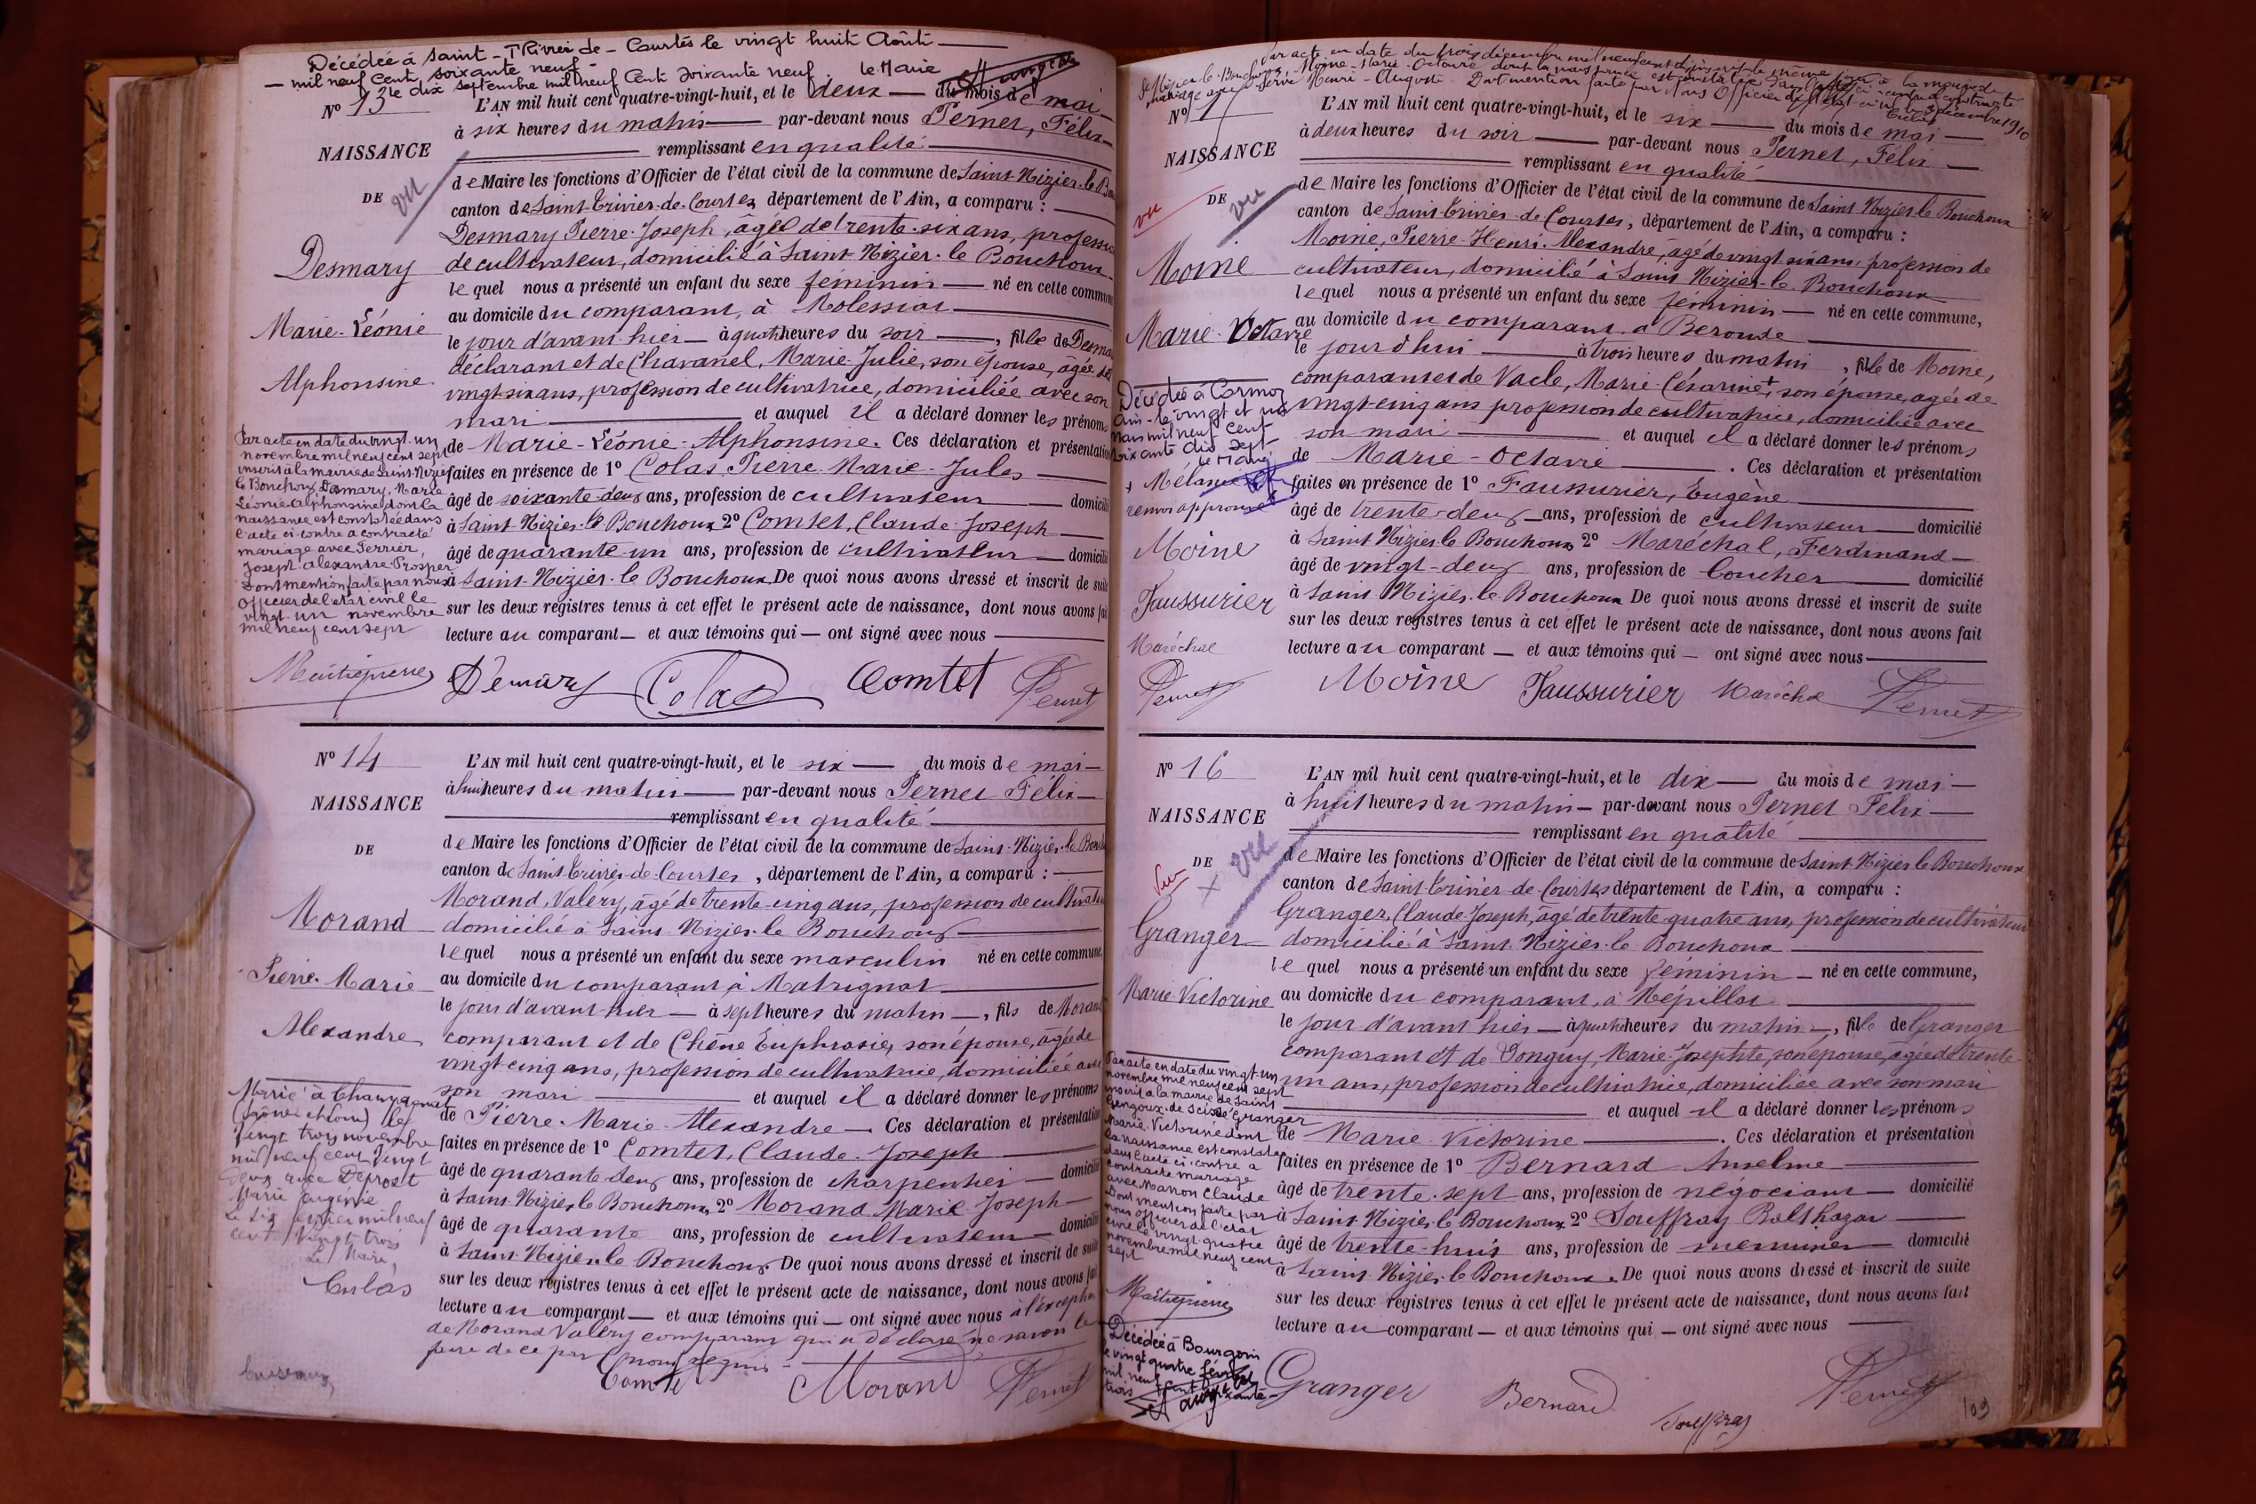 Décédée à Saint-Trivier de-Courtes le vingt huit Août
mil neuf cent soixante neuf
le dix septembre mil neuf cent soixante neuf. le Maire
N° 13
NAISSANCE
DE
vu
Desmary
Marie-Léonie
Alphonsine
Par acte en date du vingt-un
novembre mil neuf cent sept
inscrit à la mairie de Saint-Nizier
le Bouchoux, Desmary, Marie
Léonie Alphonsine dont la
naissance est constatée dans
l'acte ci-contre a contracté
mariage avec Perrier,
Joseph Alexandre Prosper
Dont mention faite par nous
officier de l'état civil le
vingt-un novembre
mil neuf cent sept
L'AN mil huit cent quatre-vingt-huit, et le deux du mois de mai
à six heures du matin par-devant nous Pernet, Félix
remplissant en qualité
de Maire les fonctions d'Officier de l'état civil de la commune de Saint-Nizier-le Bou
canton de Saint-Trivier-de-Courtes département de l'Ain, a comparu :
Desmary Pierre-Joseph, âgé de trente-six ans, profession
de cultivateur, domicilié à Saint-Nizier-le Bouchoux
lequel nous a présenté un enfant du sexe féminin né en cette commune
au domicile du comparant, à Molessiat
le jour d'avant hier à quatre heures du soir, fille de Desmary
déclarant et de Chavanel, Marie-Julie, son épouse, âgée de
vingt-six ans, profession de cultivatrice, domiciliée avec son
mari et auquel il a déclaré donner les prénoms
de Marie-Léonie-Alphonsine. Ces déclaration et présentation
faites en présence de 1° Colas Pierre Marie-Jules
âgé de soixante-deux ans, profession de cultivateur domicilié
à Saint-Nizier-le Bouchoux 2° Comtet, Claude-Joseph
âgé de quarante-un ans, profession de cultivateur domicilié
à Saint-Nizier-le Bouchoux. De quoi nous avons dressé et inscrit de suite
sur les deux registres tenus à cet effet le présent acte de naissance, dont nous avons fai
lecture au comparant et aux témoins qui ont signé avec nous
Demary Colas Comtet Pernet
N° 14
NAISSANCE
DE
Morand
Pierre-Marie
Alexandre
Marié à
(Saône et Loire) le
vingt trois novembre
mil neuf cent vingt
deux avec
Marie Eugénie
Le six janvier mil neuf
cent vingt trois
Le Maire,
Colas
L'AN mil huit cent quatre-vingt-huit, et le six du mois de mai
à huit heures du matin par-devant nous Pernet Félix
remplissant en qualité
de Maire les fonctions d'Officier de l'état civil de la commune de Saint-Nizier-le Bouch
canton de Saint-Trivier-de-Courtes, département de l'Ain, a comparu :
Morand, Valéry, âgé de trente-cinq ans, profession de cultivateur
domicilié à Saint-Nizier-le Bouchoux
lequel nous a présenté un enfant du sexe masculin né en cette commune
au domicile du comparant à Matrignat
le jour d'avant hier à sept heures du matin, fils de Morand
comparant et de Chêne Euphrasie, son épouse, âgée de
vingt cinq ans, profession de cultivatrice, domiciliée avec
son mari et auquel il a déclaré donner les prénoms
de Pierre-Marie-Alexandre. Ces déclaration et présentation
faites en présence de 1° Comtet, Claude-Joseph
âgé de quarante-deux ans, profession de charpentier domicilié
à Saint-Nizier-le Bouchoux, 2° Morand Marie Joseph
âgé de quarante ans, profession de cultivateur domicilié
à Saint-Nizier-le Bouchoux De quoi nous avons dressé et inscrit de suite
sur les deux registres tenus à cet effet le présent acte de naissance, dont nous avons fai
lecture au comparant et aux témoins qui ont signé avec nous à l'exception
de Morand Valéry comparant qui a déclaré ne savoir le
faire de ce par nous requis
Comtet Morand Pernet
Par acte en date du trois décembre mil neuf cent dix
N° 1
NAISSANCE
DE
vu
vu
Moine
Marie-Octavie
Décédée à Cormoz
Ain-le vingt et un
mars mil neuf cent
soixante dix sept
le Maire
+ Mélanie
renvoi approuvé
Moine
Faussurier
Maréchal
Pernet
L'AN mil huit cent quatre-vingt-huit, et le six du mois de mai
à deux heures du soir par-devant nous Pernet, Félix
remplissant en qualité
de Maire les fonctions d'Officier de l'état civil de la commune de Saint Nizier le Bouchoux
canton de Saint-Trivier-de Courtes, département de l'Ain, a comparu :
Moine, Pierre-Henri-Alexandre, âgé de vingt six ans, profession de
cultivateur, domicilié à Saint-Nizier-le-Bouchoux
lequel nous a présenté un enfant du sexe féminin né en cette commune,
au domicile du comparant à Beroude
le jour d'hui à trois heures du matin, fille de Moine,
comparant et de Vacle, Marie-Césarine+, son épouse, âgée de
vingt-cinq ans profession de cultivatrice, domiciliée avec
son mari et auquel il a déclaré donner les prénoms
de Marie-Octavie. Ces déclaration et présentation
faites en présence de 1° Faussurier, Eugène
âgé de trente-deux ans, profession de cultivateur domicilié
à Saint Nizier le Bouchoux 2° Maréchal, Ferdinand
âgé de vingt-deux ans, profession de boucher domicilié
à Saint Nizier-le-Bouchoux De quoi nous avons dressé et inscrit de suite
sur les deux registres tenus à cet effet le présent acte de naissance, dont nous avons fait
lecture au comparant et aux témoins qui ont signé avec nous
Moine Faussurier Maréchal Pernet
N° 16
NAISSANCE
DE
vu
Vu
Granger
Marie Victorine
Par acte en date du vingt-un
novembre mil neuf cent sept
inscrit à la mairie de Saint
Gengoux-de Scissé Granger
Marie-Victorine dont
la naissance est constatée
dans l'acte ci-contre a
contracté mariage
avec Manon Claude
Dont mention faite par
nous officier de l'état
civil le vingt quatre
novembre mil neuf cent
sept
Décédée à Bourgoin
le vingt quatre février
mil neuf cent soixante-
trois
L'AN mil huit cent quatre-vingt-huit, et le dix du mois de mai
à huit heures du matin par-devant nous Pernet Félix
remplissant en qualité
de Maire les fonctions d'Officier de l'état civil de la commune de Saint-Nizier le Bouchoux
canton de Saint-Trivier-de-Courtes département de l'Ain, a comparu :
Granger, Claude-Joseph, âgé de trente-quatre ans, profession de cultivateur
domicilié à Saint-Nizier-le Bouchoux
lequel nous a présenté un enfant du sexe féminin né en cette commune,
au domicile du comparant, à Népillat
le jour d'avant hier à quatre heures du matin, fille de Granger
comparant et de Donguy, Marie-Josephte, son épouse, âgée de trente-
un ans, profession de cultivatrice, domiciliée avec son mari
et auquel il a déclaré donner les prénoms
de Marie-Victorine. Ces déclaration et présentation
faites en présence de 1° Bernard Anselme
âgé de trente-sept ans, profession de négociant domicilié
à Saint-Nizier le Bouchoux 2° Souffray Balthazar
âgé de trente-huit ans, profession de menuisier domicilié
à Saint-Nizier-le Bouchoux. De quoi nous avons dressé et inscrit de suite
sur les deux registres tenus à cet effet le présent acte de naissance, dont nous avons fait
lecture au comparant et aux témoins qui ont signé avec nous
Granger Bernard Souffray Pernet
109